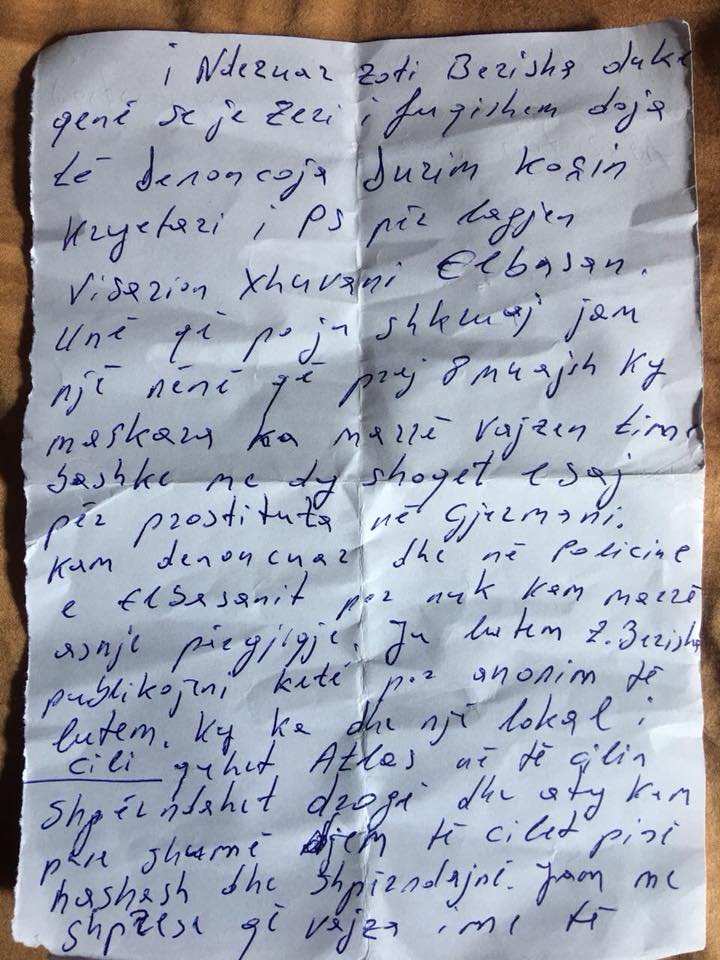 i Nderuar zoti Berisha duke
qenë se je Zeri i fuqishem doja
të denoncoja Durim
Kryetari i PS për lagjen
Visarion Xhuvani Elbasan.
Unë që po ju shkruaj jam
një nënë që prej 8 muajsh ky
maskara ka marrë vajzen time
bashke me dy shoqet e saj
për prostituta në Gjermani.
Kam denoncuar dhe në Policine
e Elbasanit por nuk kam marrë
asnje përgjigje. Ju lutem Z. Berisha
publikojeni ketë por anonim të
lutem. Ky ka dhe një lokal i
cili quhet Atlas në të cilin
Shpërndahet drogë dhe aty kam
pare shumë djem të cilet pinë
hashash dhe shpërndajnë. Jam me
shprese që vajza ime të